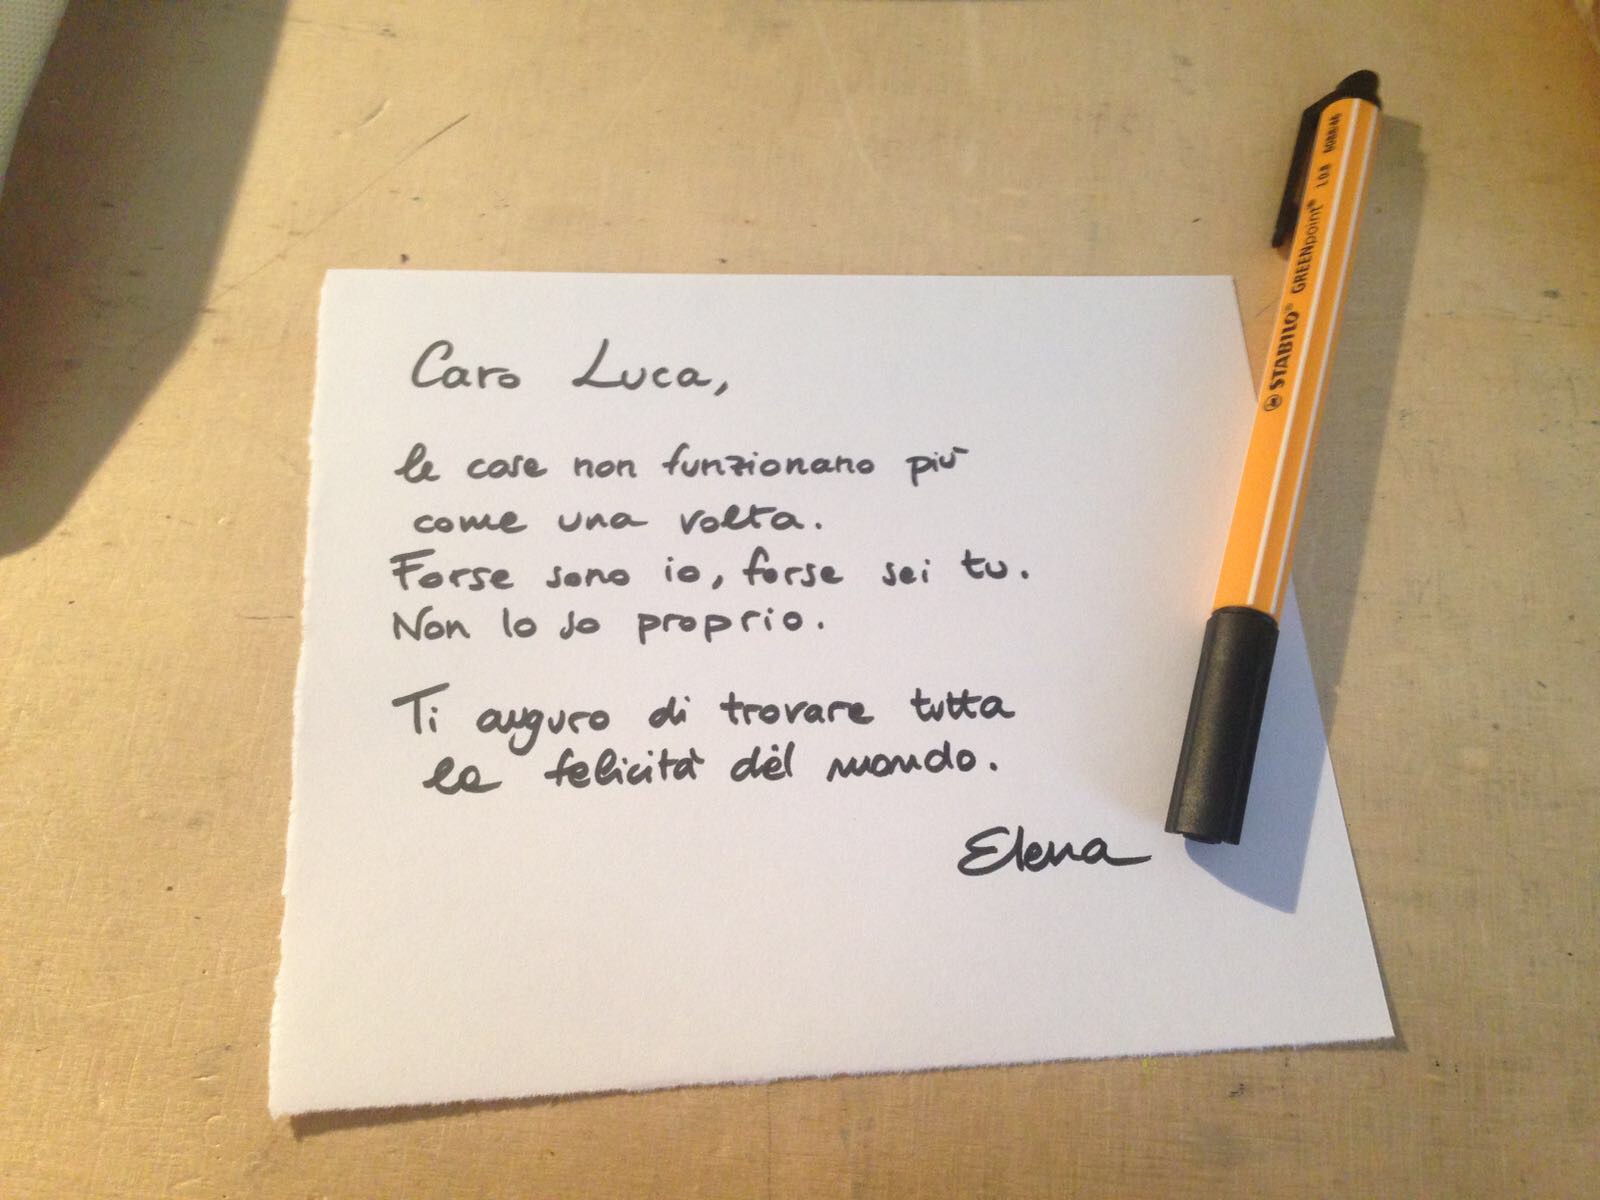 Caro Luca,
le cose non funzionano più
come una volta.
Forse sono io, forse sei tu.
Non lo so proprio.
Ti auguro di trovare tutta
la felicità del mondo.
Elena
STABILO® GREENpoint® 1.0.8 6088/46